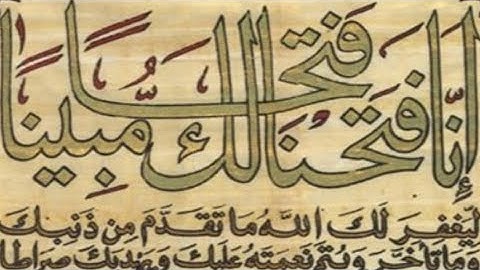 إِنَّا فَتَحْنَا لَكَ فَتْحًا مُّبِينًا
لِّيَغْفِرَ لَكَ اللَّهُ مَا تَقَدَّمَ مِن ذَنبِكَ
وَمَا تَأَخَّرَ وَيُتِمَّ نِعْمَتَهُ عَلَيْكَ وَيَهْدِيَكَ صِرَاطًا